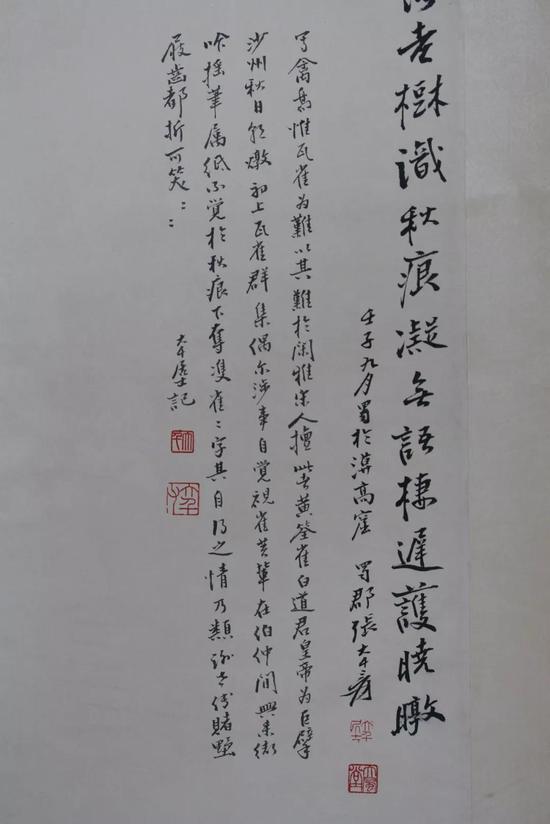 老樹識秋痕凝無語棲遲護曉暾
壬子九月寫於漠高窟 蜀郡張大千爰
寫禽鳥惟瓦雀為難以其難於閑雅宋人擅此者黃筌崔白道君皇帝為巨擘
沙州秋日朝暾初上瓦雀群集偶尔涉筆自覺視崔黃輩在伯仲間興來
吮搖筆屬紙不覺於秋痕下奪雀二字其自得之情乃類謝老傅賭墅
屐齒都折可笑二二
大千居士記